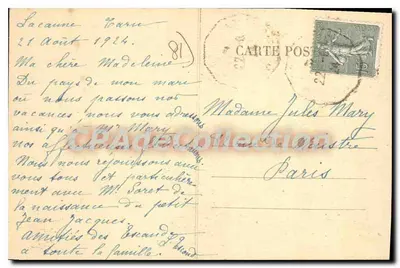 Lacaune Tarn
21 Août 1924.
81
Ma chère Madeleine
Du pays de mon mari
où nous passons nos
vacances, nous vous adressons
ainsi qu'à Mary
nos affectueux
Nous nous réjouissons avec
vous tous et particulière-
ment avec Mr Soret de
la naissance du petit
Jean Jacques.
Amitiés des Escande
à toute la famille.
CARTE POST
Madame Jules Mary
Paris
CPACollection